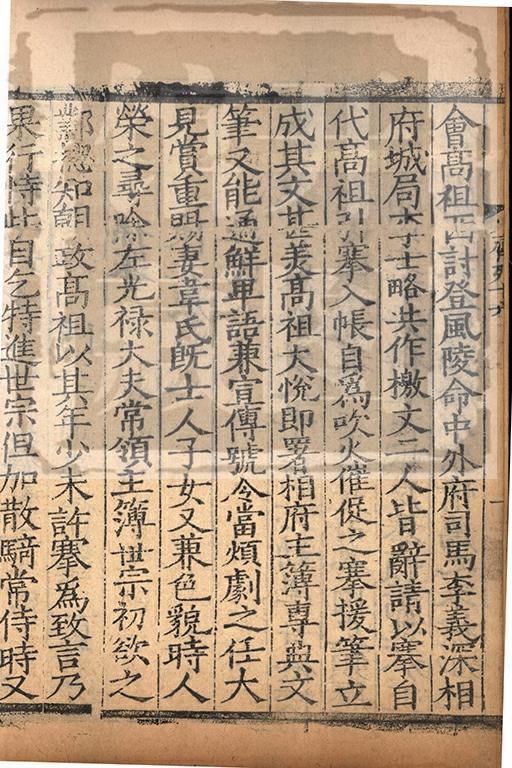 會高祖西討登風陵命中外府司馬李義深相
府城局李士略共作檄文二人皆辭請以搴自
代高祖引搴入帳自為吹火催促之搴援筆立
成其文甚美高祖大悅即署相府主簿專典文
筆又能通鮮卑語兼宣傳號令當煩劇之任大
見賞重賜妻韋氏既士人子女又兼色貌時人
榮之尋除左光禄大夫常領主簿世宗初欲之
鄴總知朝政高祖以其年少未許搴為致言乃
果行恃此自乞特進世宗但加散騎常侍時又